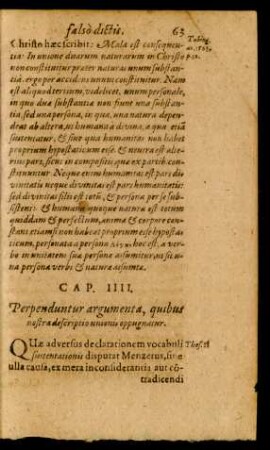 falsò dictis, 63
Christo hæc scribit: Mala est consequen-
tia: In unione duarum naturarum in Christo
non constituitur præter naturas unum substan-
tia. ergo per accidens unum constituitur. Nam
est aliquod tertium, videlicet, unum personale,
in quo duæ substantiæ non fiunt una substan-
tia, sed una persona, in qua, una natura depen-
dens ab altera, ut humana à divina, sustenta-
tur, etiamsi una quæ humanitas non habet
proprium hypostaticum esse. & neutra est alte-
rius pars, sicut in compositis quæ ex partib. con-
stituuntur. Neque enim humanitas est pars di-
vinitatis neque divinitas est pars humanitatis:
sed divinitas filii est totum, & persona per se sub-
sistens: & humana quoque natura est totum
quiddam & perfectum, anima & corpore con-
stans, etiamsi non habeat proprium esse hyposta-
ticum, personata a persona hoc est, a ver-
bo in unitatem suæ personæ assumitur, ut sit u-
na persona verbi & naturæ assumtæ.
CAP. IIII.
Perpenduntur argumenta, quibus
nostra descriptio unionis oppugnatur.
QUæ adversus declarationem vocabuli Thes. 18
sustentationis disputat Menzerus, sine
ulla causa, ex mera inconsiderantia aut cõ-
tradicendi